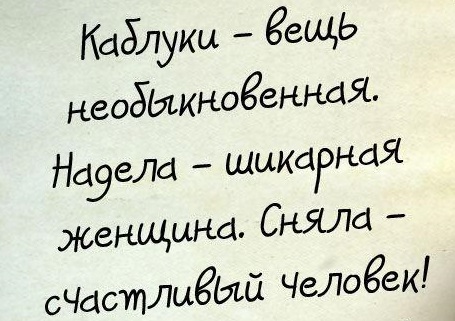 Каблуки – вещь
необыкновенная.
Надела – шикарная
женщина. Сняла –
счастливый человек!